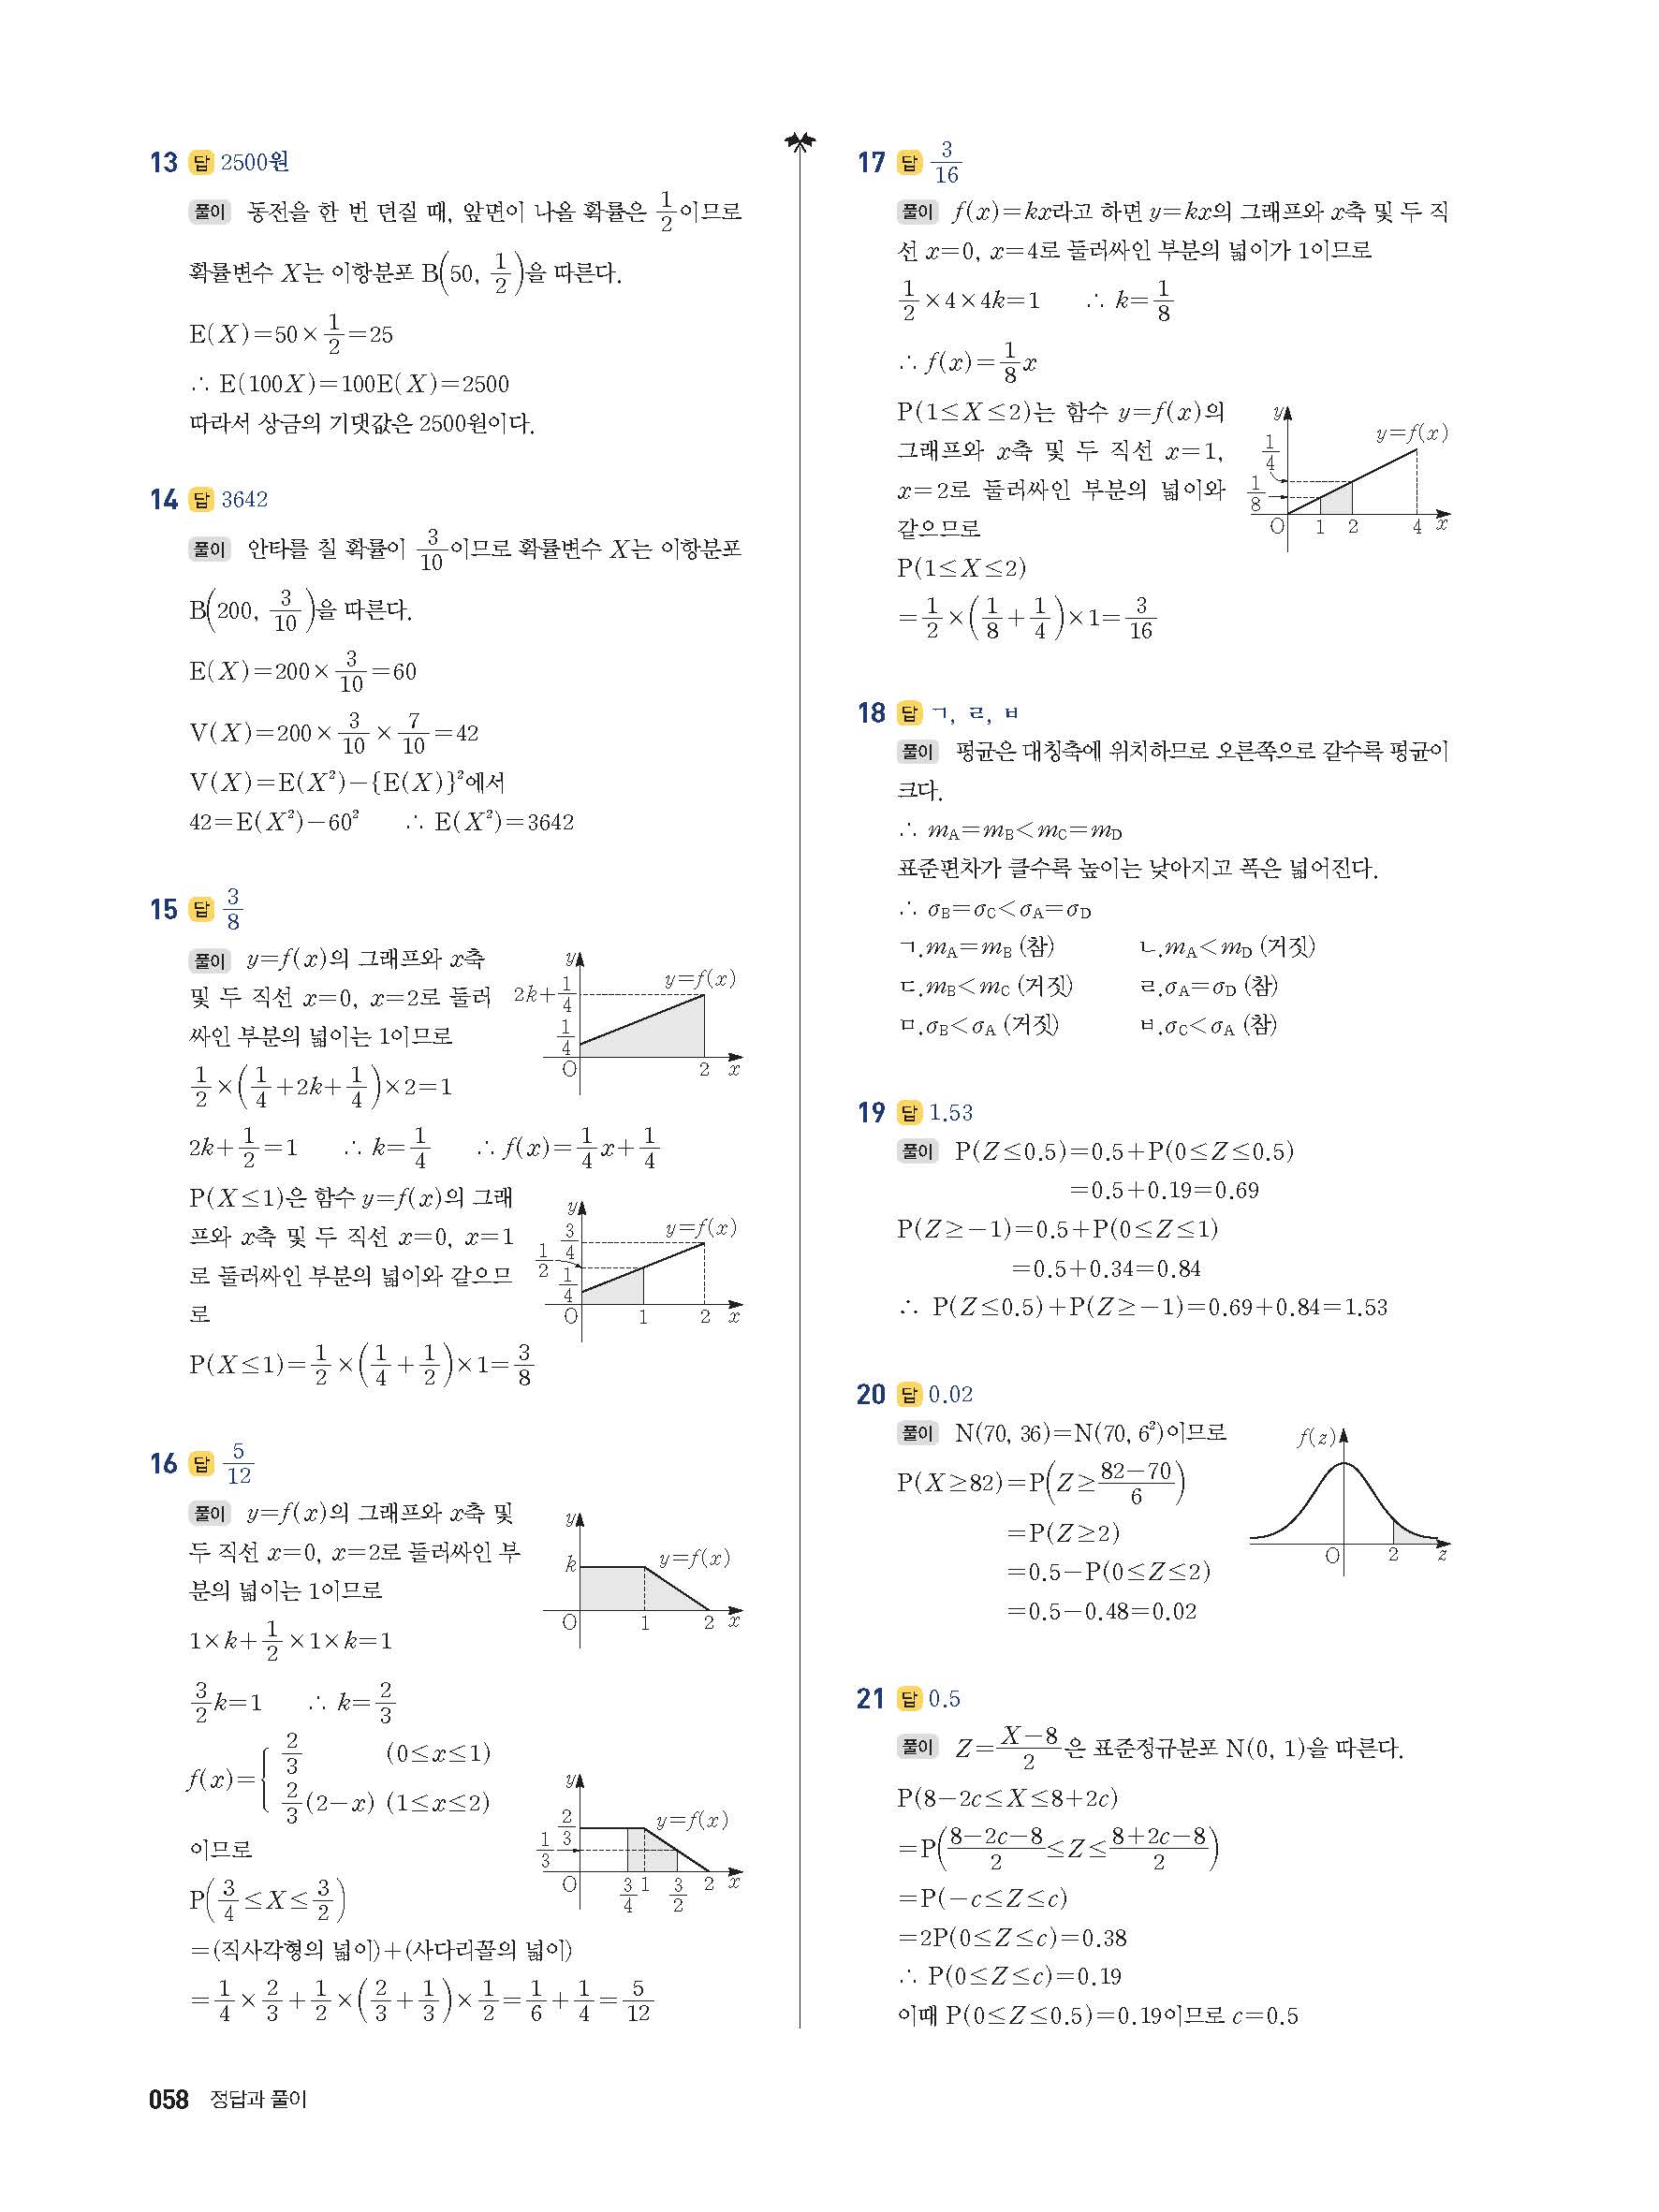 13 답 2500원
풀이 동전을 한 번 던질 때, 앞면이 나올 확률은 1/2이므로
확률변수 X는 이항분포 B(50, 1/2)을 따른다.
E(X)=50×1/2=25
∴ E(100X)=100E(X)=2500
따라서 상금의 기댓값은 2500원이다.
14 답 3642
풀이 안타를 칠 확률이 3/10이므로 확률변수 X는 이항분포
B(200, 3/10)을 따른다.
E(X)=200×3/10=60
V(X)=200×3/10×7/10=42
V(X)=E(X²)-{E(X)}²에서
42=E(X²)-60² ∴ E(X²)=3642
15 답 3/8
풀이 y=f(x)의 그래프와 x축
및 두 직선 x=0, x=2로 둘러
싸인 부분의 넓이는 1이므로
y
2k+1/4
1/4
y=f(x)
O 2 x
1/2×(1/4+2k+1/4)×2=1
2k+1/2=1 ∴ k=1/4 ∴ f(x)=1/4x+1/4
P(X≤1)은 함수 y=f(x)의 그래
프와 x축 및 두 직선 x=0, x=1
로 둘러싸인 부분의 넓이와 같으므
로
y
3/4
1/2
1/4
y=f(x)
O 1 2 x
P(X≤1)=1/2×(1/4+1/2)×1=3/8
16 답 5/12
풀이 y=f(x)의 그래프와 x축 및
두 직선 x=0, x=2로 둘러싸인 부
분의 넓이는 1이므로
y
k
y=f(x)
O 1 2 x
1×k+1/2×1×k=1
3/2k=1 ∴ k=2/3
f(x)={ 2/3 (0≤x≤1)
2/3(2-x) (1≤x≤2)
이므로
y
2/3
1/3
y=f(x)
O 3/4 1 3/2 2 x
P(3/4≤X≤3/2)
=(직사각형의 넓이)+(사다리꼴의 넓이)
=1/4×2/3+1/2×(2/3+1/3)×1/2=1/6+1/4=5/12
17 답 3/16
풀이 f(x)=kx라고 하면 y=kx의 그래프와 x축 및 두 직
선 x=0, x=4로 둘러싸인 부분의 넓이가 1이므로
1/2×4×4k=1 ∴ k=1/8
∴ f(x)=1/8x
P(1≤X≤2)는 함수 y=f(x)의
그래프와 x축 및 두 직선 x=1,
x=2로 둘러싸인 부분의 넓이와
같으므로
y
1/4
1/8
y=f(x)
O 1 2 4 x
P(1≤X≤2)
=1/2×(1/8+1/4)×1=3/16
18 답 ㄱ, ㄹ, ㅂ
풀이 평균은 대칭축에 위치하므로 오른쪽으로 갈수록 평균이
크다.
∴ mA=mB<mC=mD
표준편차가 클수록 높이는 낮아지고 폭은 넓어진다.
∴ σB=σC<σA=σD
ㄱ.mA=mB (참) ㄴ.mA<mD (거짓)
ㄷ.mB<mC (거짓) ㄹ.σA=σD (참)
ㅁ.σB<σA (거짓) ㅂ.σC<σA (참)
19 답 1.53
풀이 P(Z≤0.5)=0.5+P(0≤Z≤0.5)
=0.5+0.19=0.69
P(Z≥-1)=0.5+P(0≤Z≤1)
=0.5+0.34=0.84
∴ P(Z≤0.5)+P(Z≥-1)=0.69+0.84=1.53
20 답 0.02
풀이 N(70, 36)=N(70, 6²)이므로
P(X≥82)=P(Z≥(82-70)/6)
=P(Z≥2)
=0.5-P(0≤Z≤2)
=0.5-0.48=0.02
f(z)
O 2 z
21 답 0.5
풀이 Z=(X-8)/2은 표준정규분포 N(0, 1)을 따른다.
P(8-2c≤X≤8+2c)
=P((8-2c-8)/2≤Z≤(8+2c-8)/2)
=P(-c≤Z≤c)
=2P(0≤Z≤c)=0.38
∴ P(0≤Z≤c)=0.19
이때 P(0≤Z≤0.5)=0.19이므로 c=0.5
058 정답과 풀이